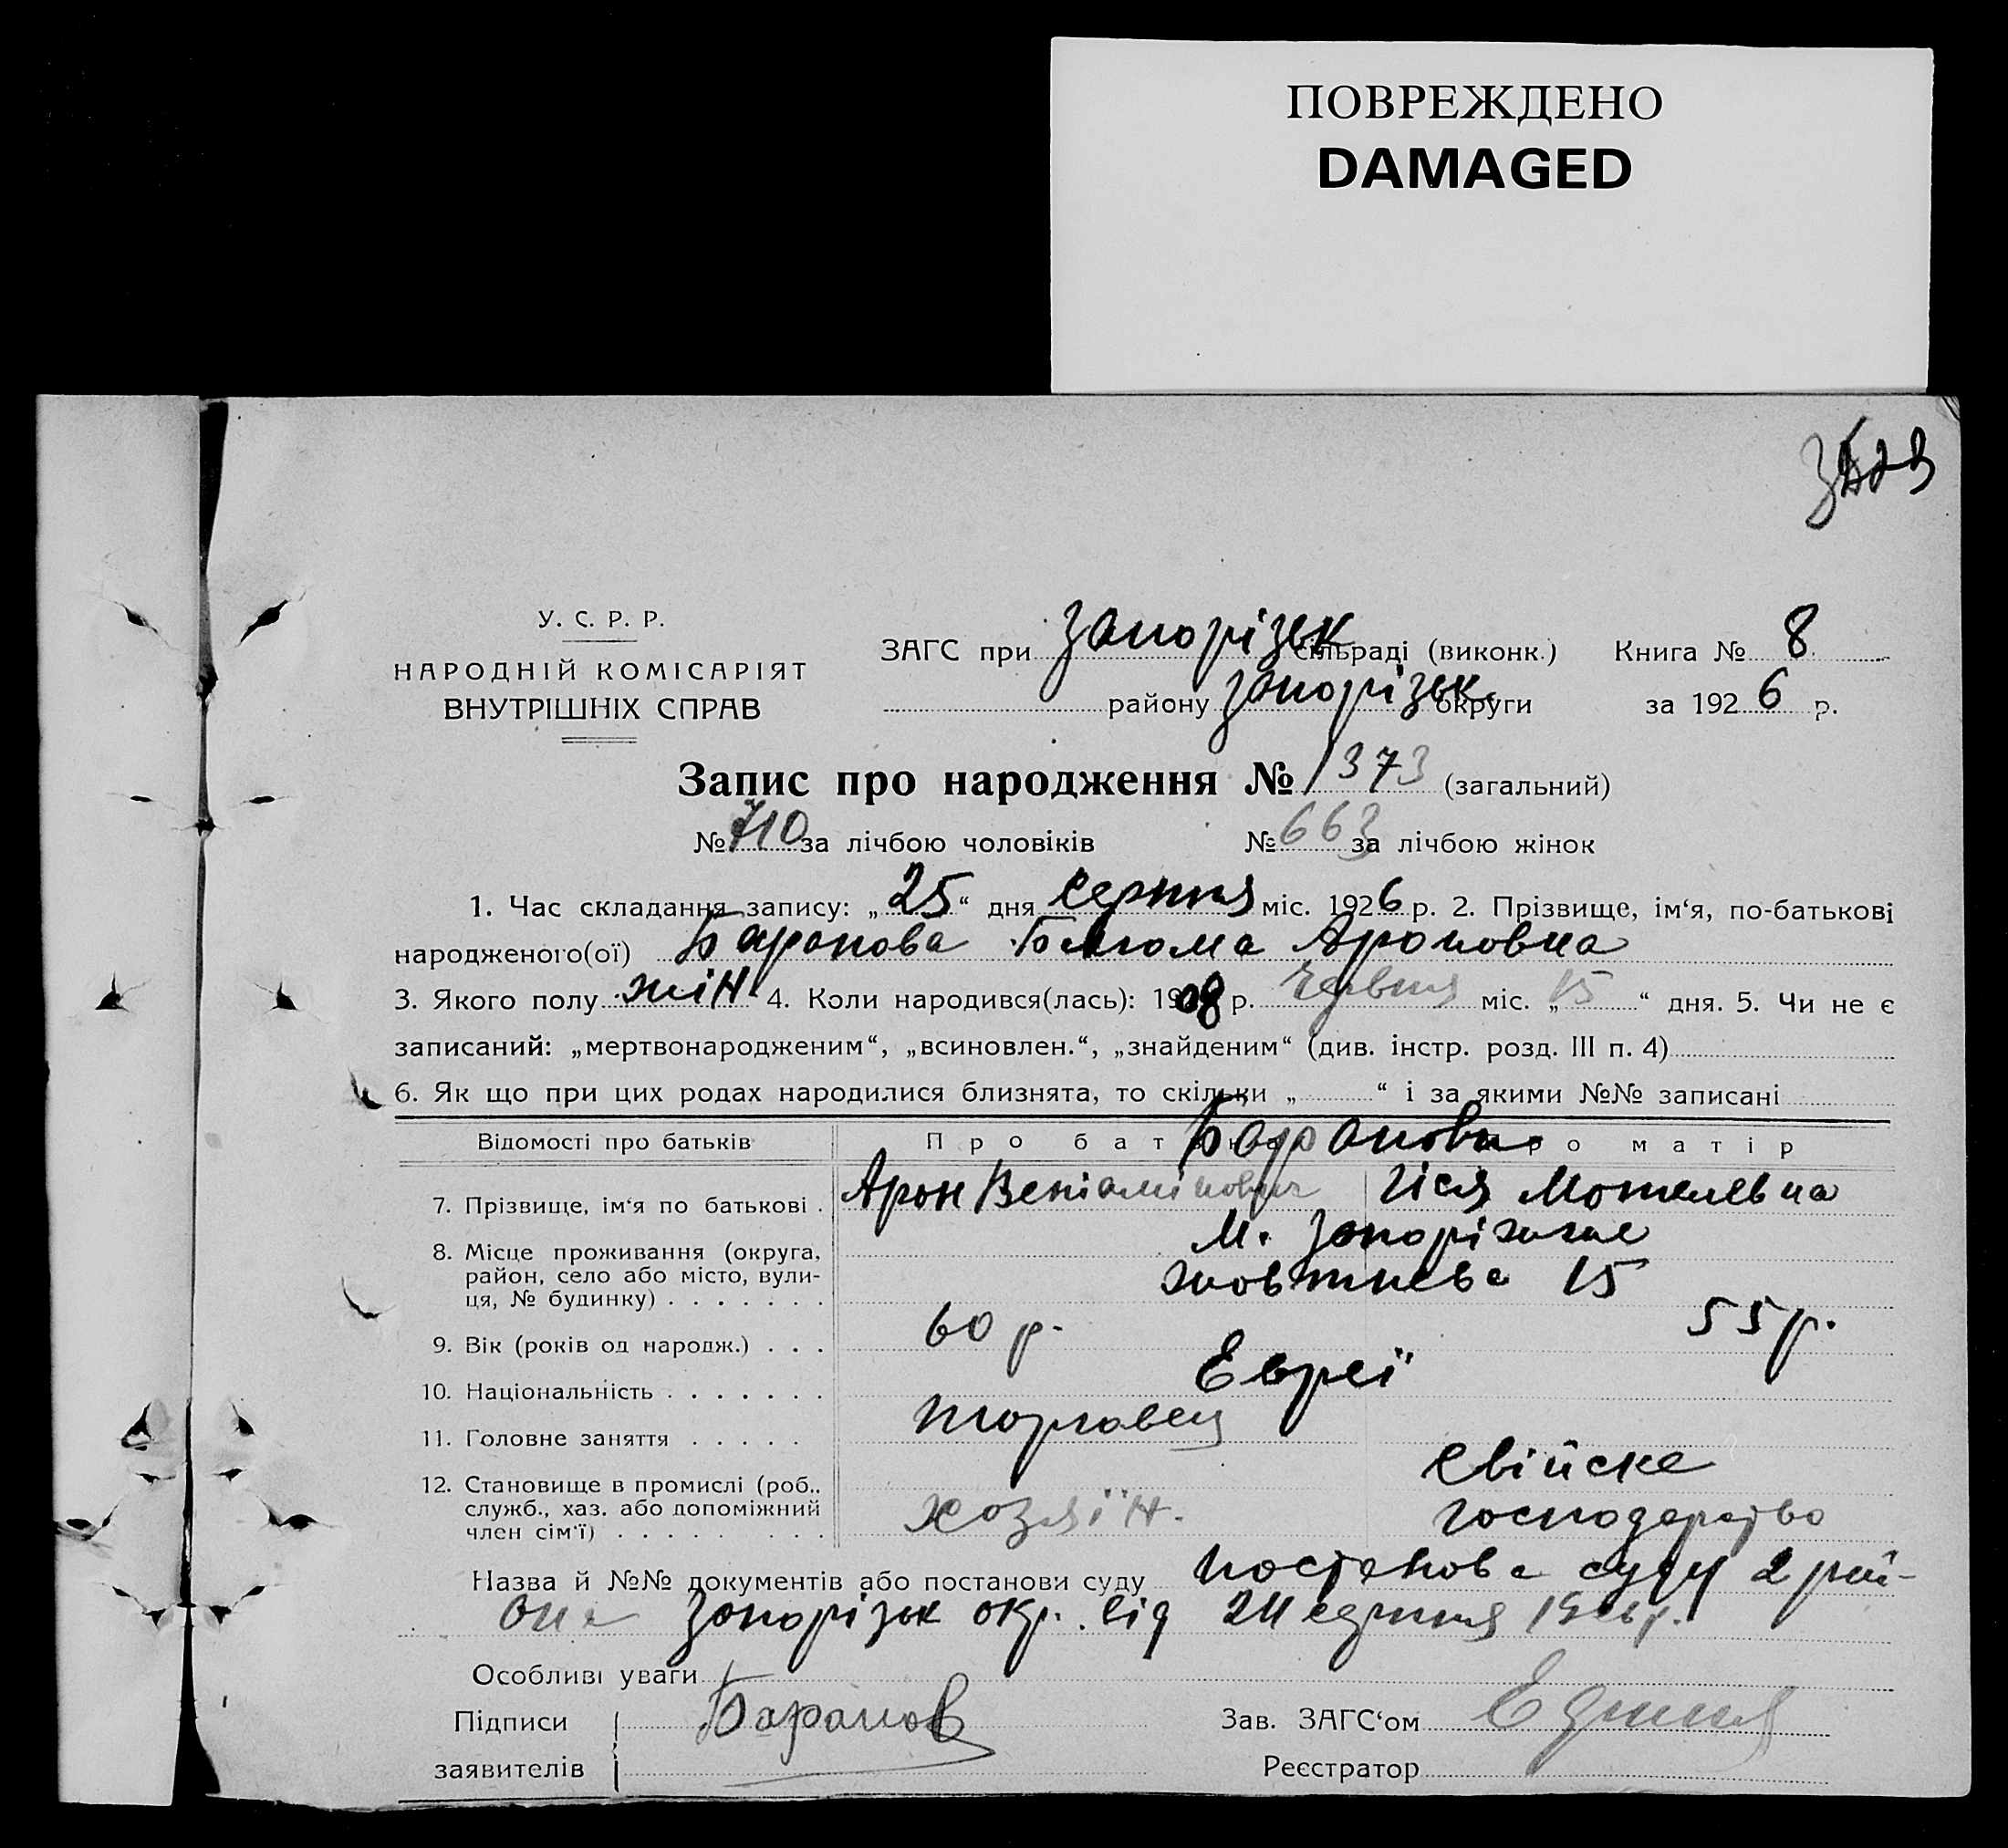 ПОВРЕЖДЕНО
DAMAGED
У. С. Р. Р.
НАРОДНІЙ КОМІСАРІЯТ
ВНУТРІШНІХ СПРАВ
ЗАГС при Запорізьк сільраді (виконк.) Книга № 8
району Запорізьк. округи за 1926 р.
Запис про народження № 1373 (загальний)
№ 710 за лічбою чоловіків № 663 за лічбою жінок
1. Час складання запису: „25“ дня серпня міс. 1926 р. 2. Прізвище, ім‘я, по-батькові
народженого(ої) Баранова Ароновна
3. Якого полу жін. 4. Коли народився(лась): 1908 р. червня міс. „15“ дня. 5. Чи не є
записаний: „мертвонародженим“, „всиновлен.“, „знайденим“ (див. інстр. розд. III п. 4)
6. Як що при цих родах народилися близнята, то скільки „ “ і за якими №№ записані
Відомості про батьків Про батька Баранови Про матір
7. Прізвище, ім‘я по батькові . Арон Веніамінович Гіся Мошелевна
8. Місце проживання (округа, М. Запоріжжє
район, село або місто, вули- Жовтнева 15
ця, № будинку) . . . . . . .
9. Вік (років од народж.) . . . 60 р. 55 р.
10. Національність . . . . . . . Евреї
11. Головне заняття . . . . . торговец
12. Становище в промислі (роб., свійске
служб., хаз. або допоміжний хозяїн. господарство
член сім‘ї) . . . . . . . . .
Назва й №№ документів або постанови суду постанова суду 2 рай-
она Запорізьк окр. від 24 серпня 1926 р.
Особливі уваги
Підписи Баранов Зав. ЗАГС‘ом
заявителів Реєстратор